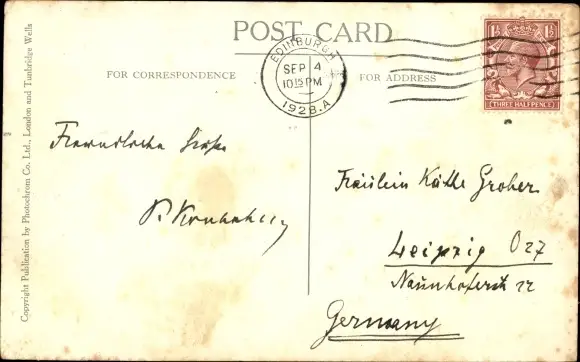 POST CARD
FOR CORRESPONDENCE
FOR ADDRESS
EDINBURGH
SEP 4
10 15 PM
1928.A
1½ 1½
THREE HALFPENCE
Copyright Publication by Photochrom Co. Ltd., London and Tunbridge Wells
Freundliche Grüße
Fräulein Käthe Groher
Leipzig O 27
Naunhoferstr 22
Germany